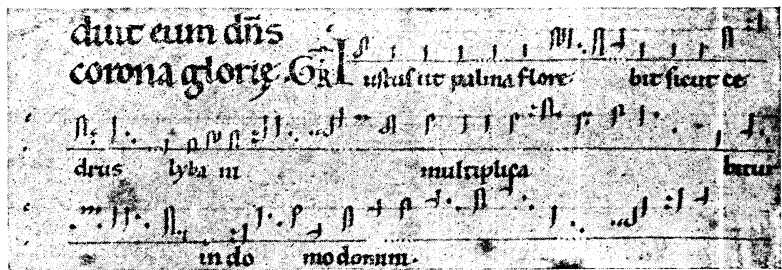 duit eum dn̄s
corona glorię. GR Iustus ut palma flore bit sicut ce
drus lyba ni multiplica bitur
in do mo domini.